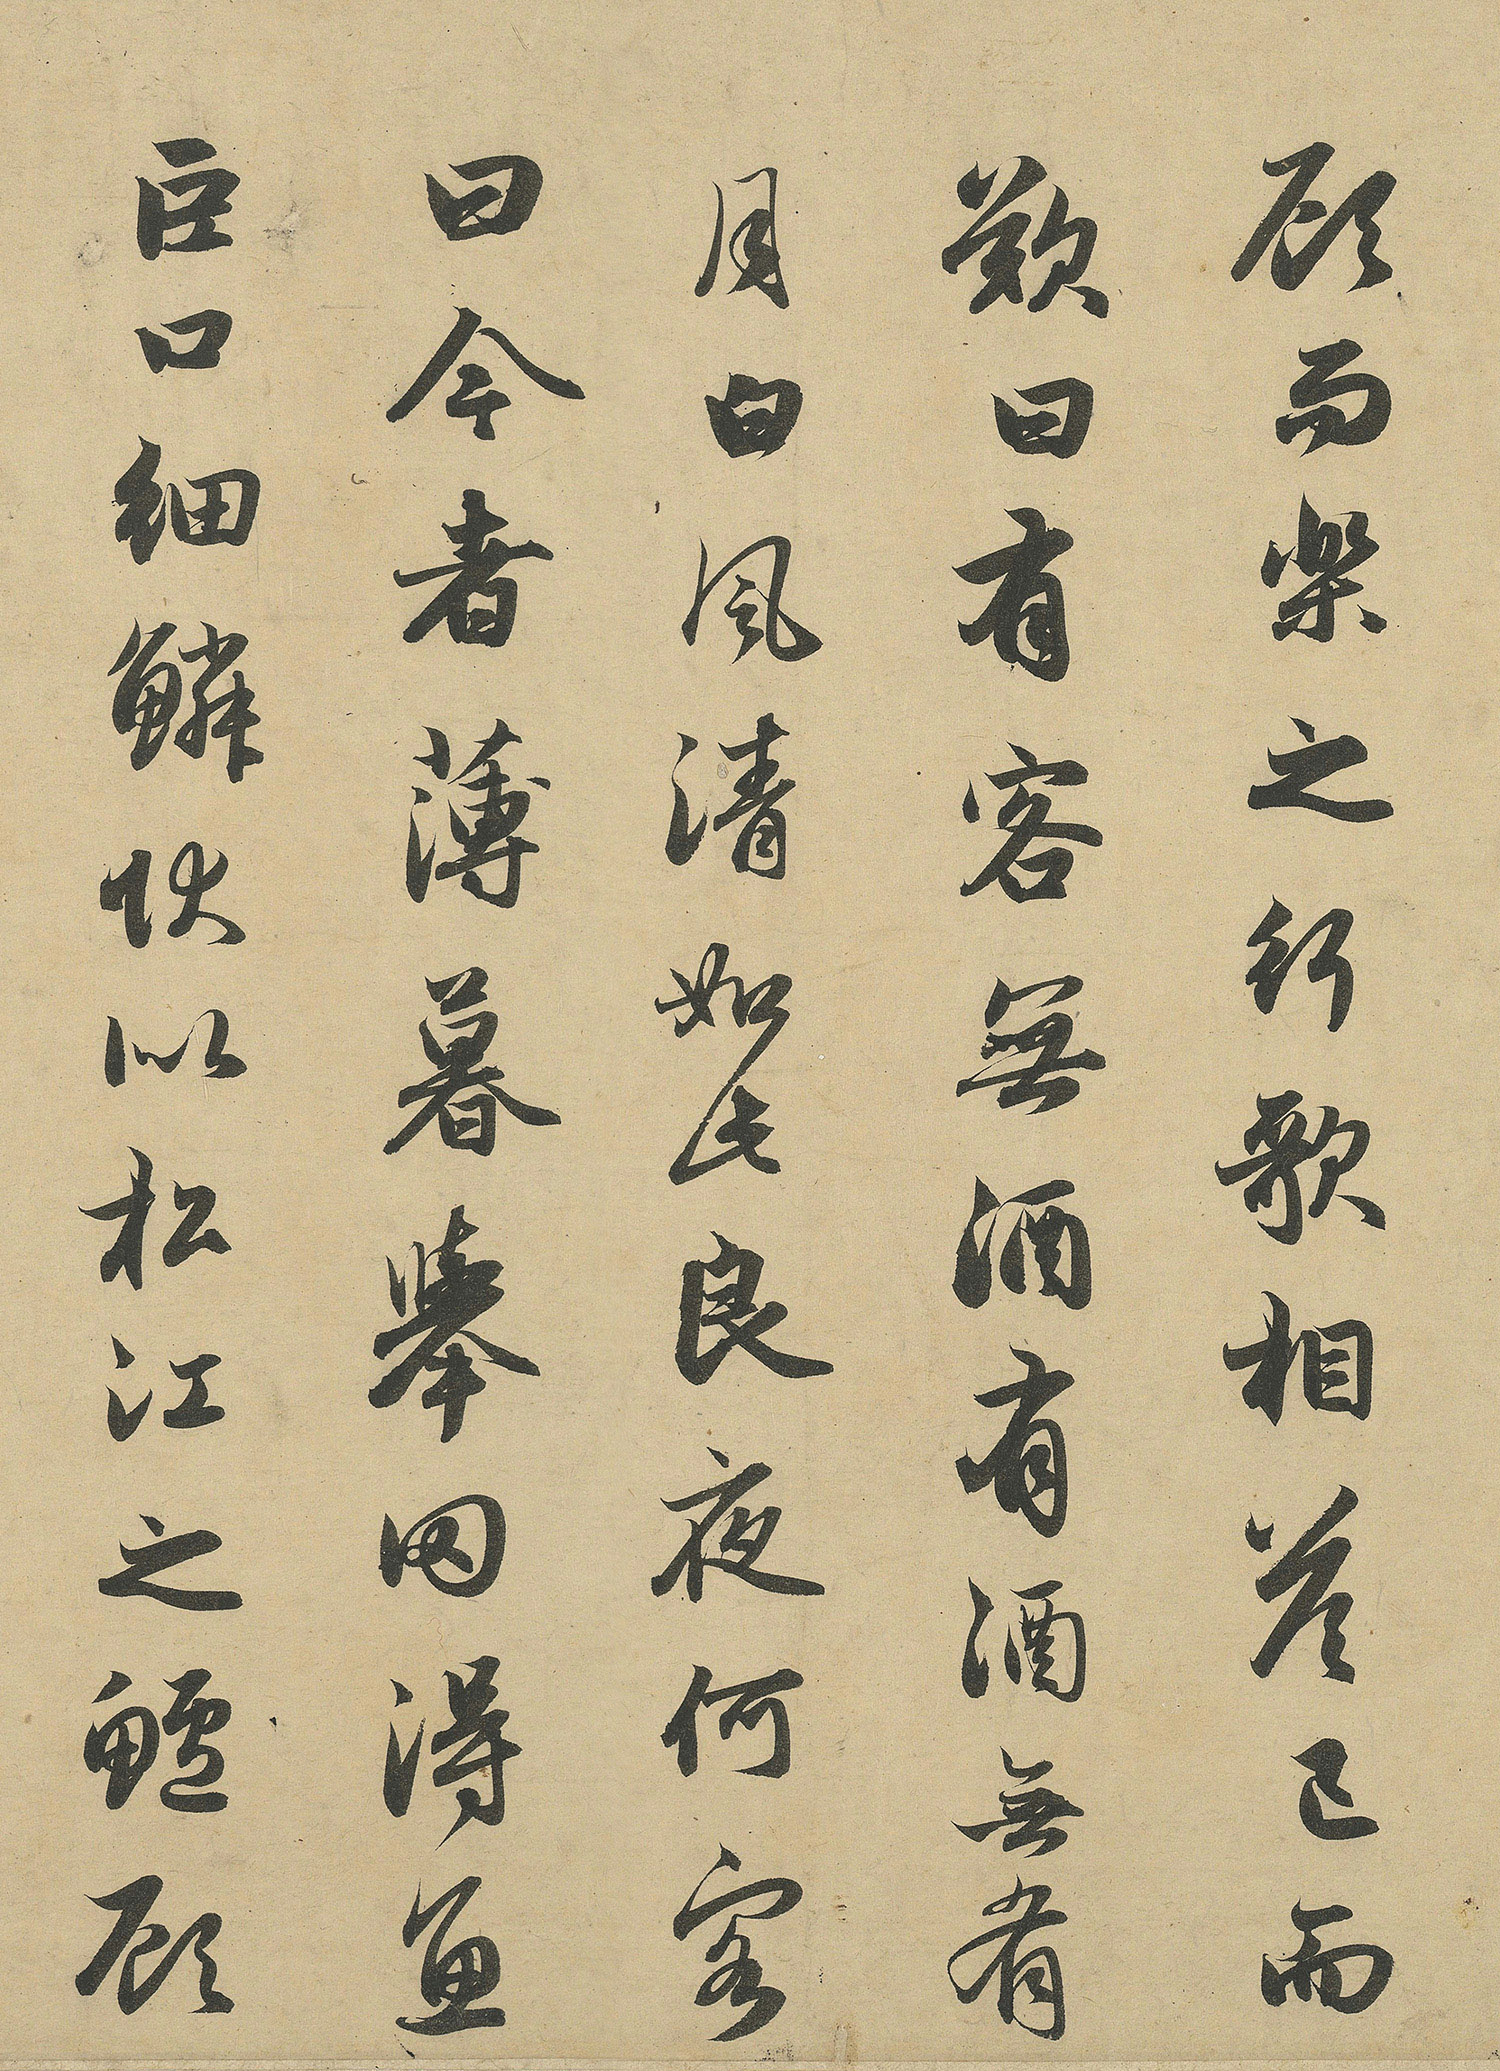 顧而樂之行歌相答已而
歎曰有客無酒有酒無肴
月白風清如此良夜何客
曰今者薄暮舉网得魚
巨口細鱗狀以松江之鱸顧